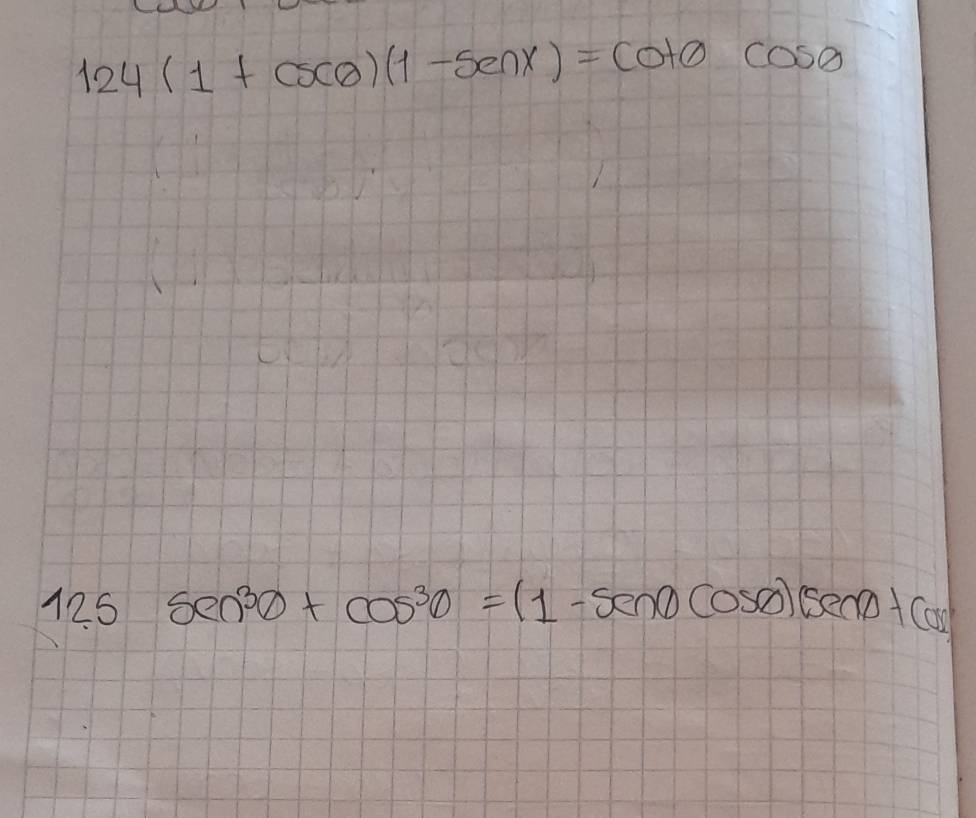 124 (1 + cscθ)(1 - senx) = cotθ cosθ
125 sen³θ + cos³θ = (1 - senθ cosθ)(senθ + cos